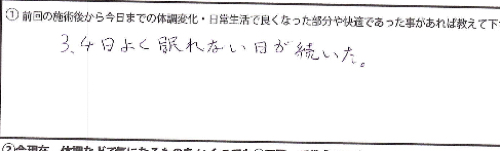 ①前回の施術後から今日までの体調変化・日常生活で良くなった部分や快適であった事があれば教えて下
3、4日よく眠れない日が続いた。